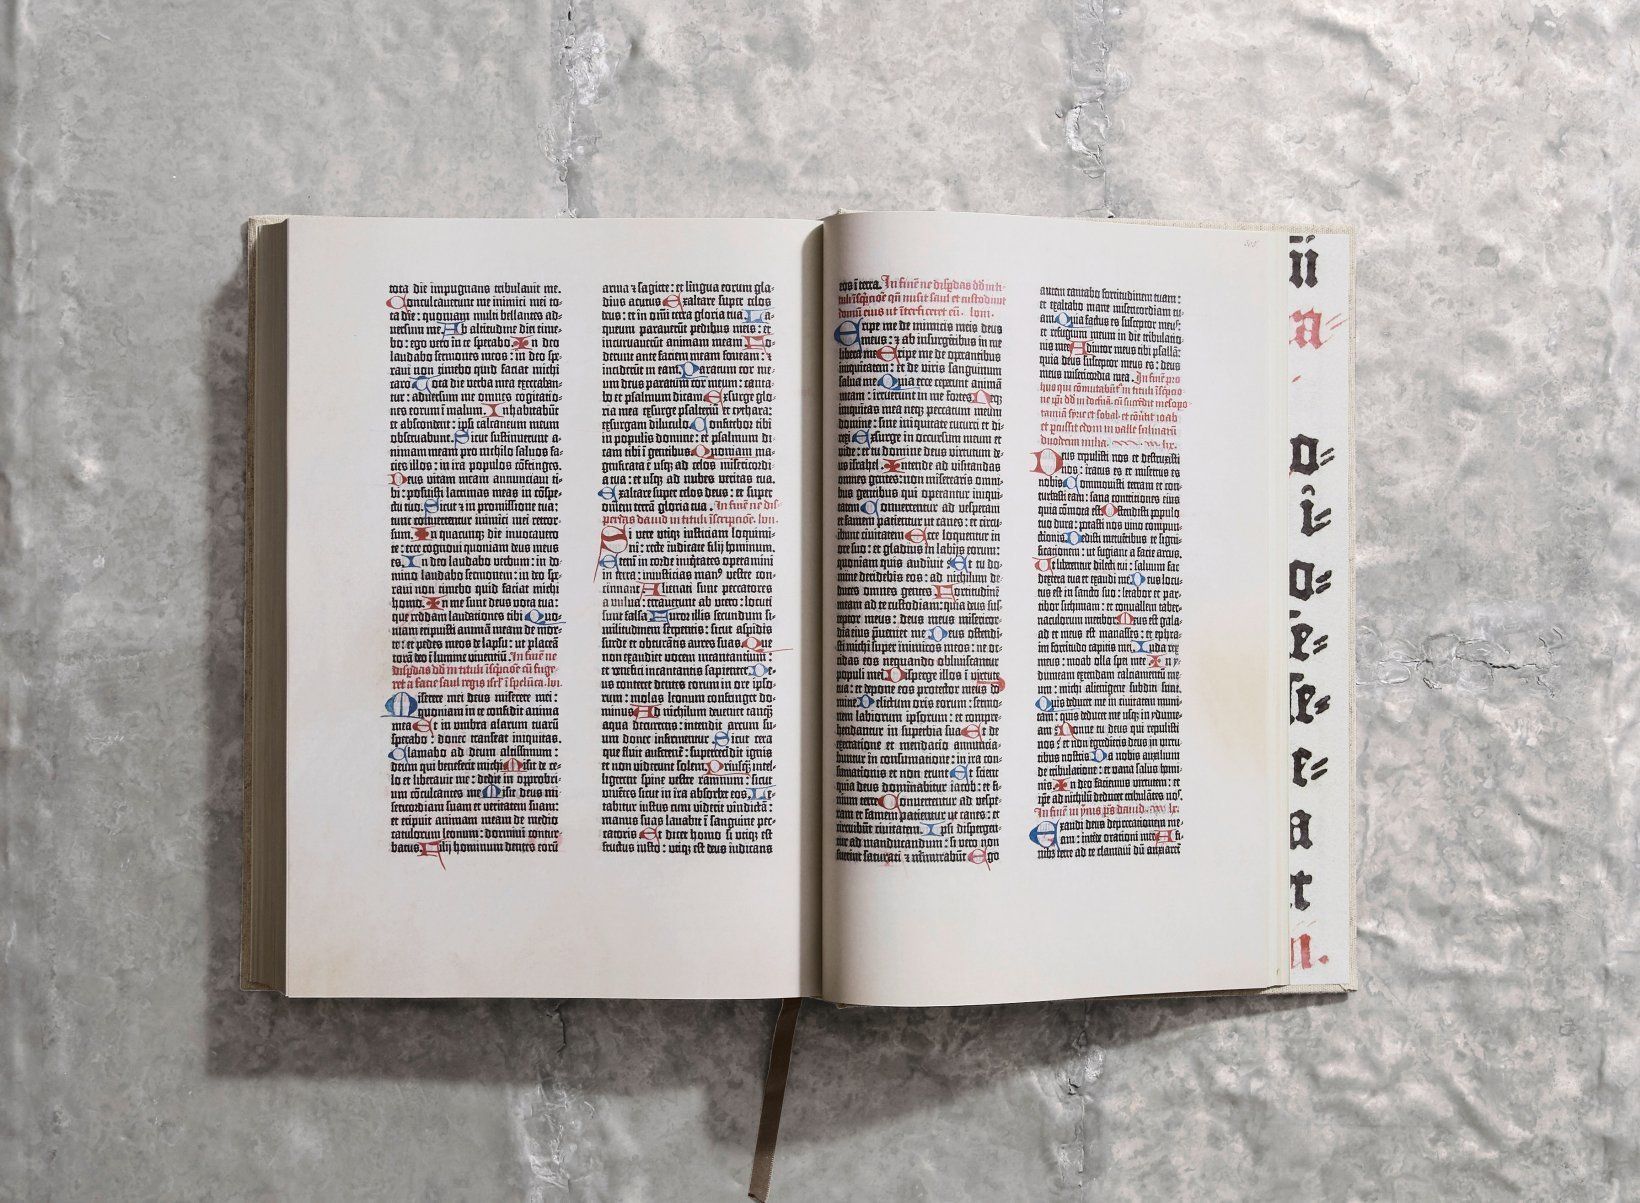 tota die impugnans tribulavit me.
Conculcaverunt me inimici mei to-
ta die: quoniam multi bellantes ad-
versum me. Ab altitudine diei time-
bo: ego vero in te sperabo. In deo
laudabo sermones meos: in deo spe-
ravi non timebo quid faciat michi
caro. Tota die verba mea execraban-
tur: adversum me omnes cogitatio-
nes eorum ī malum. Inhabitabūt
et abscondent: ipsi calcaneum meum
observabunt. Sicut sustinuerunt a-
nimam meam pro nichilo salvos fa-
cies illos: in ira populos cōfringes.
Deus vitam meam annunciavi ti-
bi: posuisti lacrimas meas in cōspe-
ctu tuo. Sicut et in promissione tua:
tunc convertentur inimici mei retror-
sum. In quacunq; die invocavero
te: ecce cognovi quoniam deus meus
es. In deo laudabo verbum: in do-
mino laudabo sermonem: in deo spe-
ravi non timebo quid faciat michi
homo. In me sunt deus vota tua:
que reddam laudationes tibi. Quo-
niam eripuisti animā meam de mor-
te: et pedes meos de lapsu: ut placeā
corā deo ī lumine viventiū. In finē ne
disperdas dd in tituli īscriptiōē cū fuge-
ret a facie saul regis isrl' ī spelūca. lvi.
Miserere mei deus miserere mei:
quoniam in te confidit anima
mea. Et in umbra alarum tuarū
sperabo: donec transeat iniquitas.
Clamabo ad deum altissimum:
deum qui benefecit michi. Misit de ce-
lo et liberavit me: dedit in opprobri-
um cōculcantes me. Misit deus mi-
sericordiam suam et veritatem suam:
et eripuit animam meam de medio
catulorum leonum: dormivi contur-
batus. Filij hominum dentes eorū
arma et sagitte: et lingua eorum gla-
dius acutus. Exaltare super celos
deus: et in omī terra gloria tua. La-
queum paraverūt pedibus meis: et
incurvaverūt animam meam. Fo-
derunt ante faciem meam foveam: et
inciderūt in eam. Paratum cor me-
um deus paratum cor meum: canta-
bo et psalmum dicam. Exsurge glo-
ria mea exsurge psalteriū et cythara:
exsurgam diluculo. Confitebor tibi
in populis domine: et psalmum di-
cam tibi ī gentibus. Quoniam ma-
gnificata ē usq; ad celos misericordi-
a tua: et usq; ad nubes veritas tua.
Exaltare super celos deus: et super
omnem terrā gloria tua. In finē ne dis-
perdas david in tituli īscriptiōē. lvii.
Si vere utiq; iusticiam loquimi-
ni: recte iudicate filij hominum.
Etenī in corde iniq̄tates operamini
in terra: iniusticias man9 vestre con-
cinnant. Alienati sunt peccatores
a vulva: erraverunt ab utero: locuti
sunt falsa. Furor illis secundum si-
militudinem serpentis: sicut aspidis
surde et obturantis aures suas. Que
non exaudiet vocem incantantium:
et venefici incantantis sapienter. De-
us conteret dentes eorum in ore ipso-
rum: molas leonum confringet do-
minus. Ad nichilum devenient tanq̄
aqua decurrens: intendit arcum su-
um donec infirmentur. Sicut cera
que fluit auferent̄: supercecidit ignis
et non viderunt solem. Priusq̄ intel-
ligerent spine vestre ramnum: sicut
viventes sicut in ira absorbet eos. Le-
tabitur iustus cum viderit vindictā:
manus suas lavabit ī sanguine pec-
catoris. Et dicet homo si utiq; est
fructus iusto: utiq; est deus iudicans
eos ī terra. In finē ne disp̄das dd in ti-
tuli īscriptiōē qn̄ misit saul et custodivit
domū eius ut īterficeret eū. lviii.
Eripe me de inimicis meis deus
meus: et ab insurgētibus in me
libera me. Eripe me de operantibus
iniquitatem: et de viris sanguinum
salva me. Quia ecce ceperunt animā
meam: irruerunt in me fortes. Neq;
iniquitas mea neq; peccatum meum
domine: sine iniquitate cucurri et di-
rexi. Exsurge in occursum meum et
vide: et tu domine deus virtutum de-
us israhel. Intende ad visitandas
omnes gentes: non miserearis omni-
bus qui operantur iniqui-
tatem. Convertentur ad vesperam
et famem patientur ut canes: et circu-
ibunt civitatem. Ecce loquentur in
ore suo: et gladius in labijs eorum:
quoniam quis audivit. Et tu do-
mine deridebis eos: ad nichilum de-
duces omnes gentes. Fortitudinē
meam ad te custodiam: quia deus sus-
ceptor meus: deus meus misericor-
dia eius p̄veniet me. Deus ostendi-
sti michi super inimicos meos: ne oc-
cidas eos nequando obliviscantur
populi mei. Disperge illos ī virtute
tua: et depone eos protector meus do-
mine. Delictum oris eorum: sermo-
nem labiorum ipsorum: et compre-
hendantur in superbia sua. Et de
execratione et mendacio annuncia-
buntur in consumatione: in ira con-
sumationis et non erunt. Et scient
quia deus dominabitur iacob: et fi-
nium terre. Convertentur ad vespe-
ram et famem patientur ut canes: et
circuibūt civitatem. Ipsi dispergen-
tur ad manducandum: si vero non
fuerint saturati et murmurabūt. Ego
autem cantabo fortitudinem tuam:
et exaltabo mane misericordiam tu-
am. Quia factus es susceptor meus:
et refugium meum in die tribulatio-
nis mee. Adiutor meus tibi psallā:
quia deus susceptor meus es: deus
meus misericordia mea. In finē pro
hijs qui cōmutabūt̄ in tituli īscriptio-
ne ip̄i dd in doctrinā cū succēdit mesopo-
tamiā syrie et sobal. et cōv̄tit ioab
et percussit edom in valle salinarū
duodecim milia. lix.
Deus repulisti nos et destruxisti
nos: iratus es et misertus es
nobis. Commovisti terram et con-
turbasti eam: sana contritiones eius
quia cōmota est. Ostendisti populo
tuo dura: potasti nos vino compun-
ctionis. Dedisti metuentibus te signi-
ficationem: ut fugiant a facie arcus.
Ut liberentur dilecti tui: salvum fac
dextera tua et exaudi me. Deus locu-
tus est in sancto suo: letabor et par-
tibor sichimam: et convallem taber-
naculorum metibor. Meus est gala-
ad et meus est manasses: et ephra-
im fortitudo capitis mei. Iuda rex
meus: moab olla spei mee. In y-
dumeam extendam calciamentū me-
um: michi alienigene subditi sunt.
Quis deducet me in civitatem muni-
tam: quis deducet me usq; in ydume-
am. Nonne tu deus qui repulisti
nos: et non egredieris deus in virtu-
tibus nostris. Da nobis auxilium
de tribulatione: et vana salus homi-
nis. In deo faciemus virtutem: et
ip̄e ad nichilū deducet tribulātes nos.
In finē ī ymnis p̄s david. lx.
Exaudi deus deprecationem me-
am: intēde orationi mee. A fi-
nibus terre ad te clamavi dū anxiaret̄